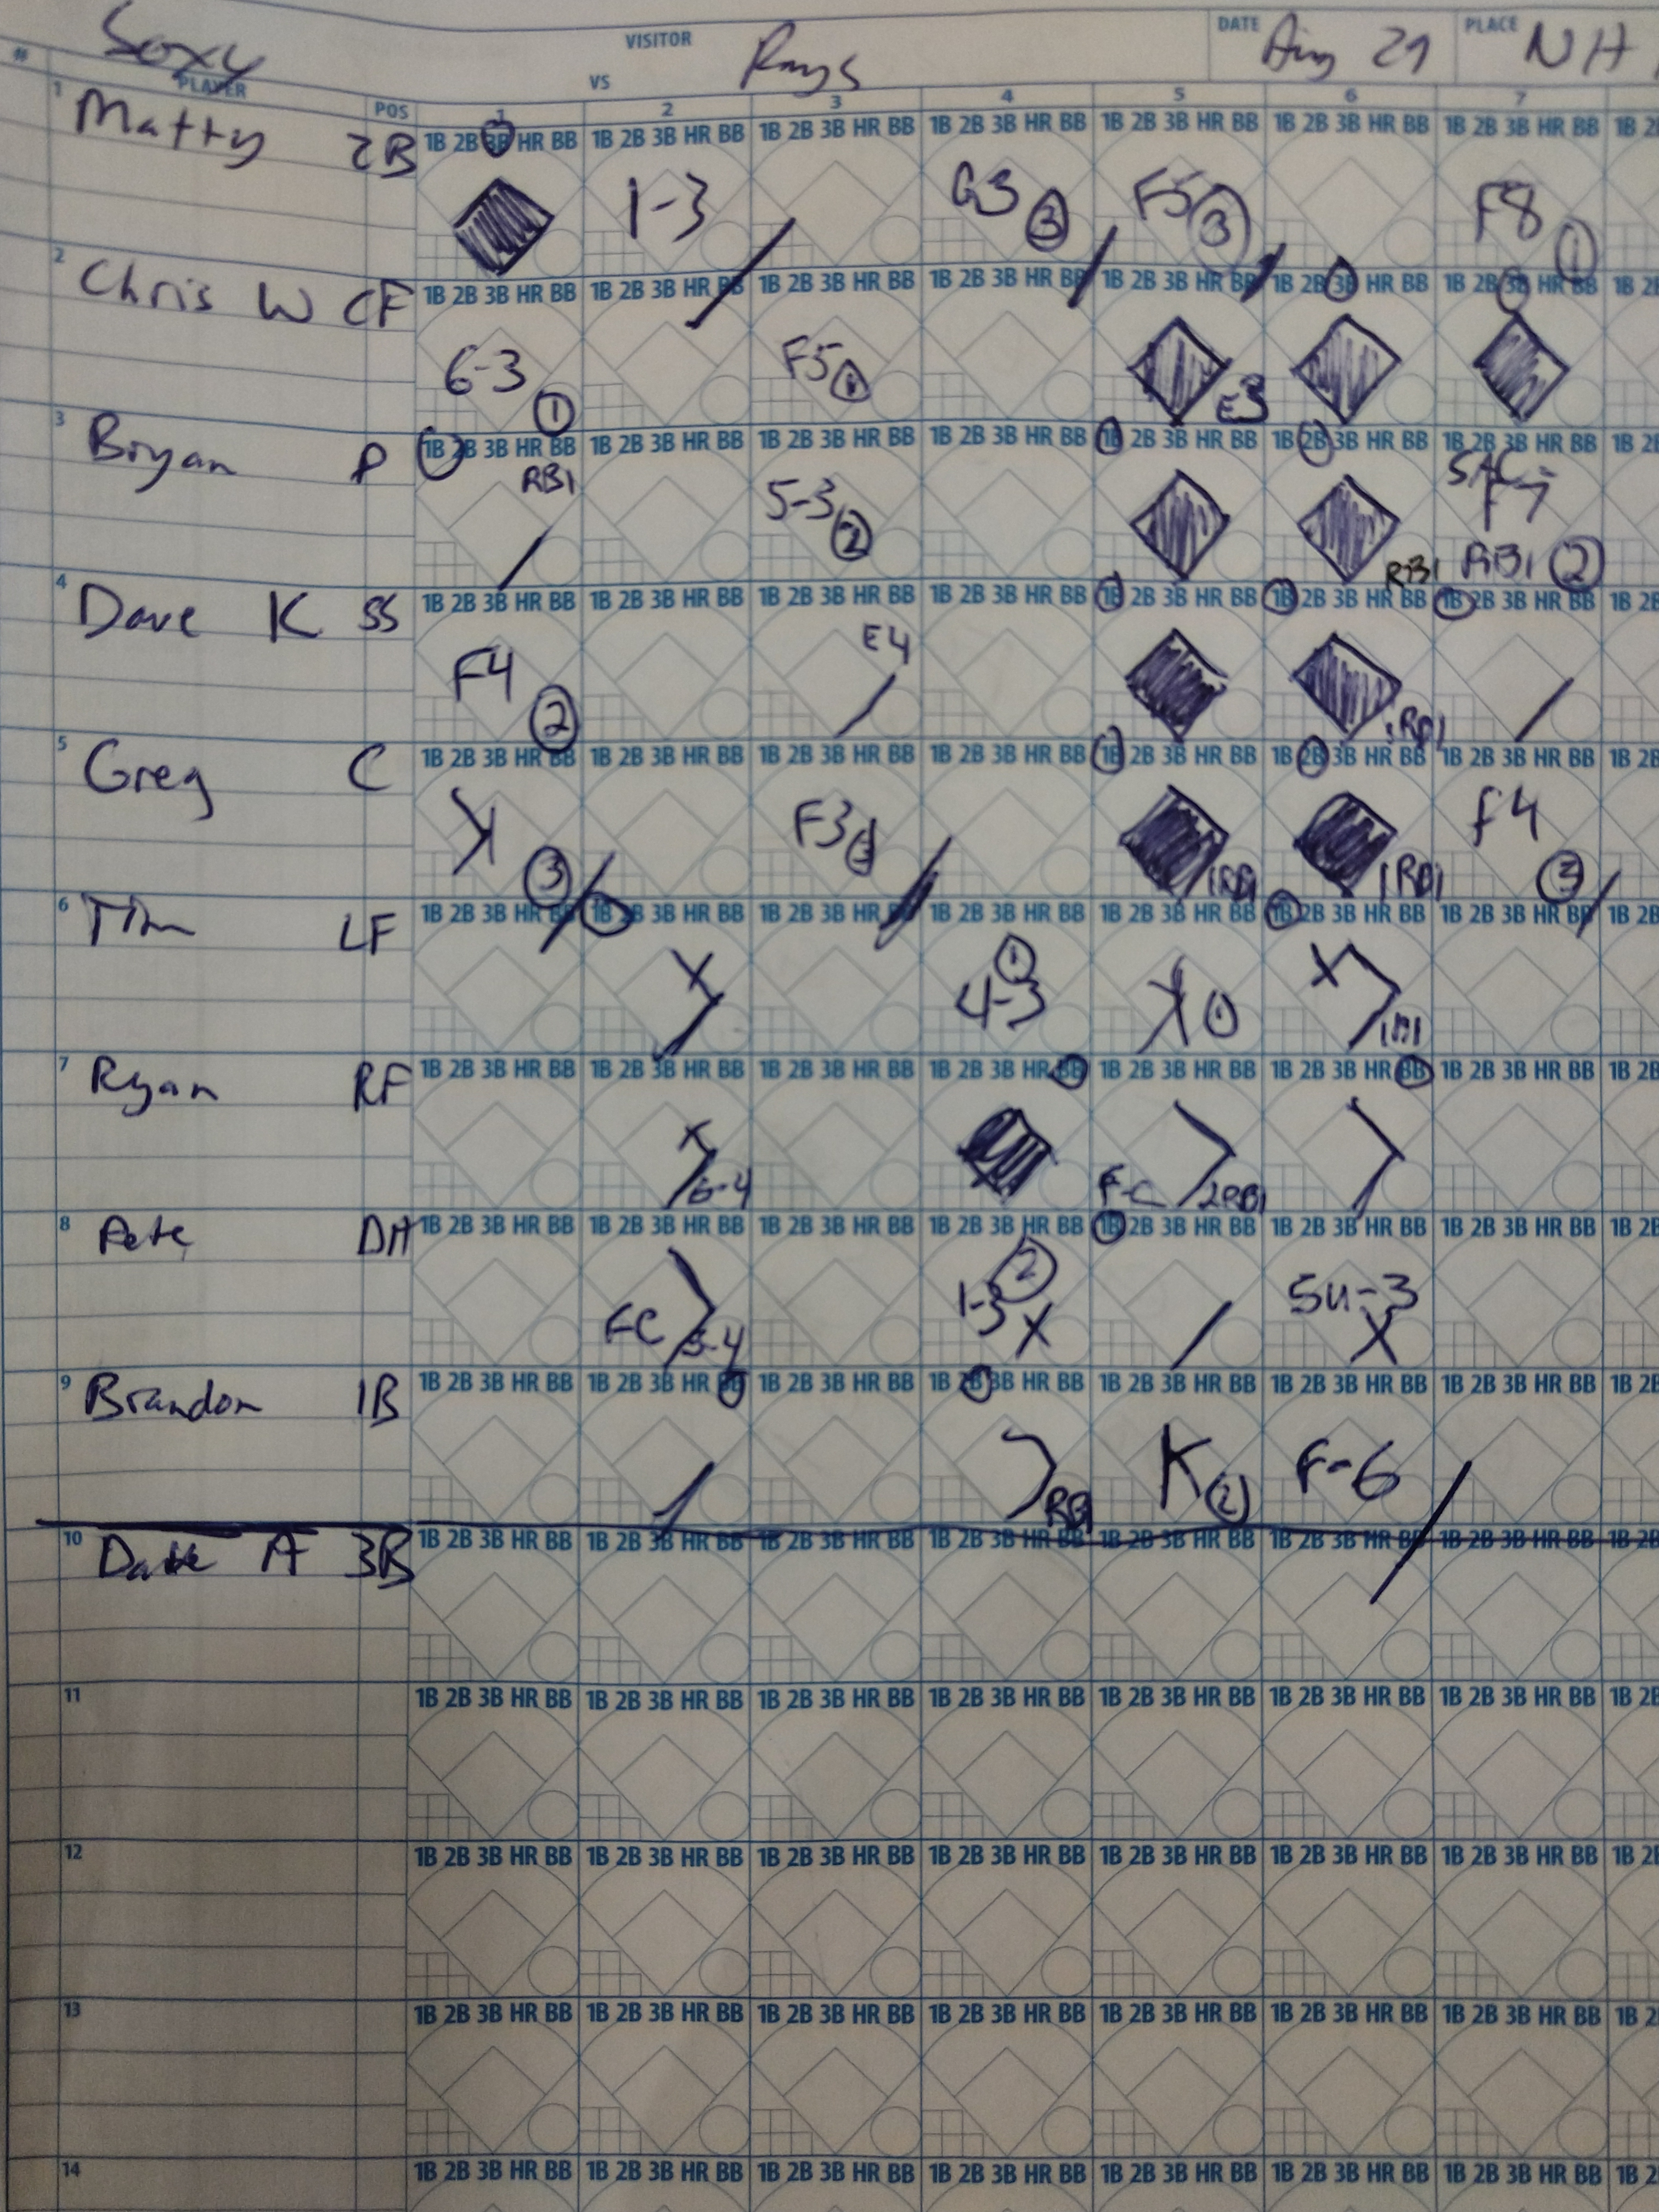 Soxy VISITOR VS Rays DATE Aug 29 PLACE NH
# PLAYER POS 1 2 3 4 5 6 7
1 Matty 2B 1B 2B 3B HR BB 1B 2B 3B HR BB 1B 2B 3B HR BB 1B 2B 3B HR BB 1B 2B 3B HR BB 1B 2B 3B HR BB 1B 2B 3B HR BB 1B 2
1-3 G3 3 F5 3 F8 1
2 Chris W CF 1B 2B 3B HR BB 1B 2B 3B HR BB 1B 2B 3B HR BB 1B 2B 3B HR BB 1B 2B 3B HR BB 1B 2B 3B HR BB 1B 2B 3B HR BB 1B 2
6-3 1 F5 1 E3
3 Bryan P 1B 2B 3B HR BB 1B 2B 3B HR BB 1B 2B 3B HR BB 1B 2B 3B HR BB 1B 2B 3B HR BB 1B 2B 3B HR BB 1B 2B 3B HR BB 1B 2
RBI 5-3 2 RBI SAC F7 RBI 2
4 Dave K SS 1B 2B 3B HR BB 1B 2B 3B HR BB 1B 2B 3B HR BB 1B 2B 3B HR BB 1B 2B 3B HR BB 1B 2B 3B HR BB 1B 2B 3B HR BB 1B 2B
F4 2 E4 1RBI
5 Greg C 1B 2B 3B HR BB 1B 2B 3B HR BB 1B 2B 3B HR BB 1B 2B 3B HR BB 1B 2B 3B HR BB 1B 2B 3B HR BB 1B 2B 3B HR BB 1B 2B
K 3 F3 3 1RBI 1RBI F4 3
6 Tim LF 1B 2B 3B HR BB 1B 2B 3B HR BB 1B 2B 3B HR BB 1B 2B 3B HR BB 1B 2B 3B HR BB 1B 2B 3B HR BB 1B 2B 3B HR BB 1B 2B
X 1 4-3 K 1 X
7 Ryan RF 1B 2B 3B HR BB 1B 2B 3B HR BB 1B 2B 3B HR BB 1B 2B 3B HR BB 1B 2B 3B HR BB 1B 2B 3B HR BB 1B 2B 3B HR BB 1B 2B
X 6-4 F-C 2RBI
8 Pete DH 1B 2B 3B HR BB 1B 2B 3B HR BB 1B 2B 3B HR BB 1B 2B 3B HR BB 1B 2B 3B HR BB 1B 2B 3B HR BB 1B 2B 3B HR BB 1B 2B
FC 1-3 2 X 5U-3 X
9 Brandon 1B 1B 2B 3B HR BB 1B 2B 3B HR BB 1B 2B 3B HR BB 1B 2B 3B HR BB 1B 2B 3B HR BB 1B 2B 3B HR BB 1B 2B 3B HR BB 1B 2B
RBI K 2 F-6
10 Dave A 3B 1B 2B 3B HR BB 1B 2B 3B HR BB 1B 2B 3B HR BB 1B 2B 3B HR BB 1B 2B 3B HR BB 1B 2B 3B HR BB 1B 2B 3B HR BB 1B 2B
11 1B 2B 3B HR BB 1B 2B 3B HR BB 1B 2B 3B HR BB 1B 2B 3B HR BB 1B 2B 3B HR BB 1B 2B 3B HR BB 1B 2B 3B HR BB 1B 2B
12 1B 2B 3B HR BB 1B 2B 3B HR BB 1B 2B 3B HR BB 1B 2B 3B HR BB 1B 2B 3B HR BB 1B 2B 3B HR BB 1B 2B 3B HR BB 1B 2
13 1B 2B 3B HR BB 1B 2B 3B HR BB 1B 2B 3B HR BB 1B 2B 3B HR BB 1B 2B 3B HR BB 1B 2B 3B HR BB 1B 2B 3B HR BB 1B 2
14 1B 2B 3B HR BB 1B 2B 3B HR BB 1B 2B 3B HR BB 1B 2B 3B HR BB 1B 2B 3B HR BB 1B 2B 3B HR BB 1B 2B 3B HR BB 1B 2